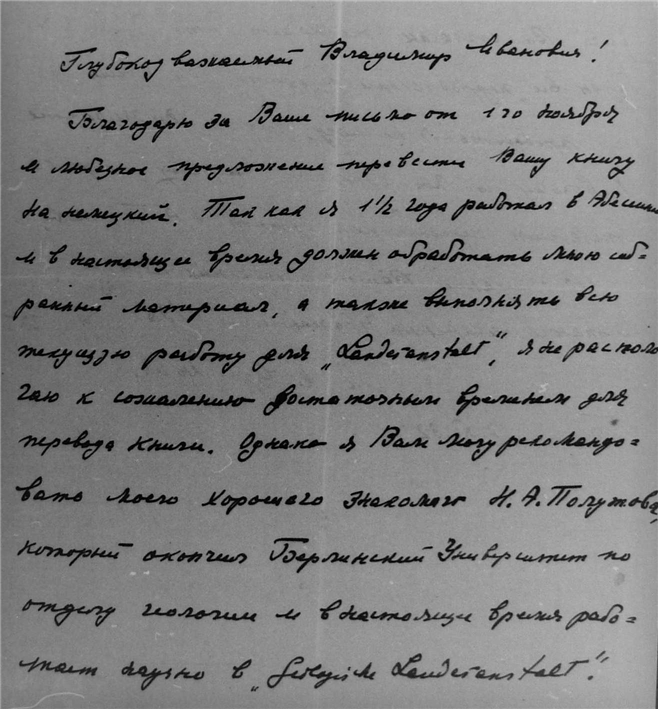 Глубокоуважаемый Владимир Иванович!
Благодарю за Ваше письмо от 1го ноября
и любезное предложение перевести Вашу книгу
на немецкий. Так как я 1½ года работал в Абесинии
и в настоящее время должен обработать мною соб-
ранный материал, а также выполнять всю
текущую работу для „Landesanstalt“, я не распола
гаю к сожалению достаточным временем для
перевода книги. Однако я Вам могу рекомандо-
вать моего хорошего знакомого Н. А. Полутова,
который окончил Берлинский Университет по
отделу геологии и в настоящее время рабо-
тает научно в „Geologische Landesanstalt“.